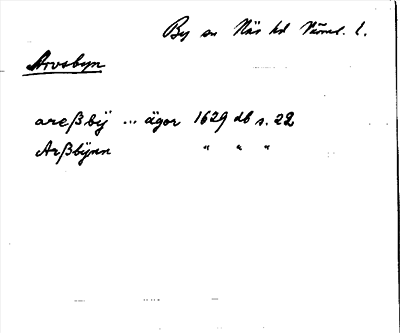 By sn Näs hd Värml. l.
Arvsbyn
areßbÿ ... ägor 1629 db s. 22
Arßbÿnn " " "